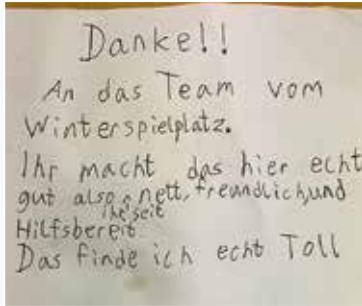 Danke!!
An das Team vom
Winterspielplatz.
Ihr macht das hier echt
gut also nett, freundlich und
ihr seit
Hilfsbereit
Das finde ich echt Toll